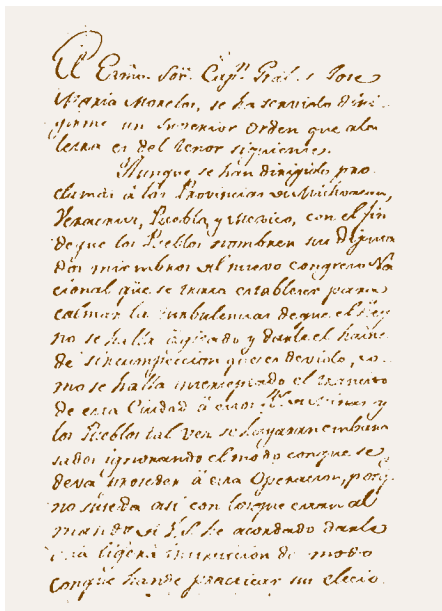 El Exmo. Sor. Capn. Gral. Jose
Maria Morelos, se ha servido diri-
girme un Superior Orden que ala
letra es del tenor siguiente.
Aunque se han dirigido pro-
clamas á las Provincias de Michoacan,
Veracruz, Puebla, y Mexico, con el fin
de que los Pueblos nombren sus Diputa
dos miembros al nuevo congreso Na
cional que se trata establecer para
calmar la turbulencia de que el Rey
no se halla agitado y darle el
de
mo se halla el transito
de esta Ciudad á y
los Pueblos tal vez se hayaran embara
sados ignorando el modo conque se
deva proseder á esta Operacion, porq.
no suseda asi con los que estan al
mando de V.S. he acordado darle
una ligera instrucion de modo
conque han de practicar su elecio